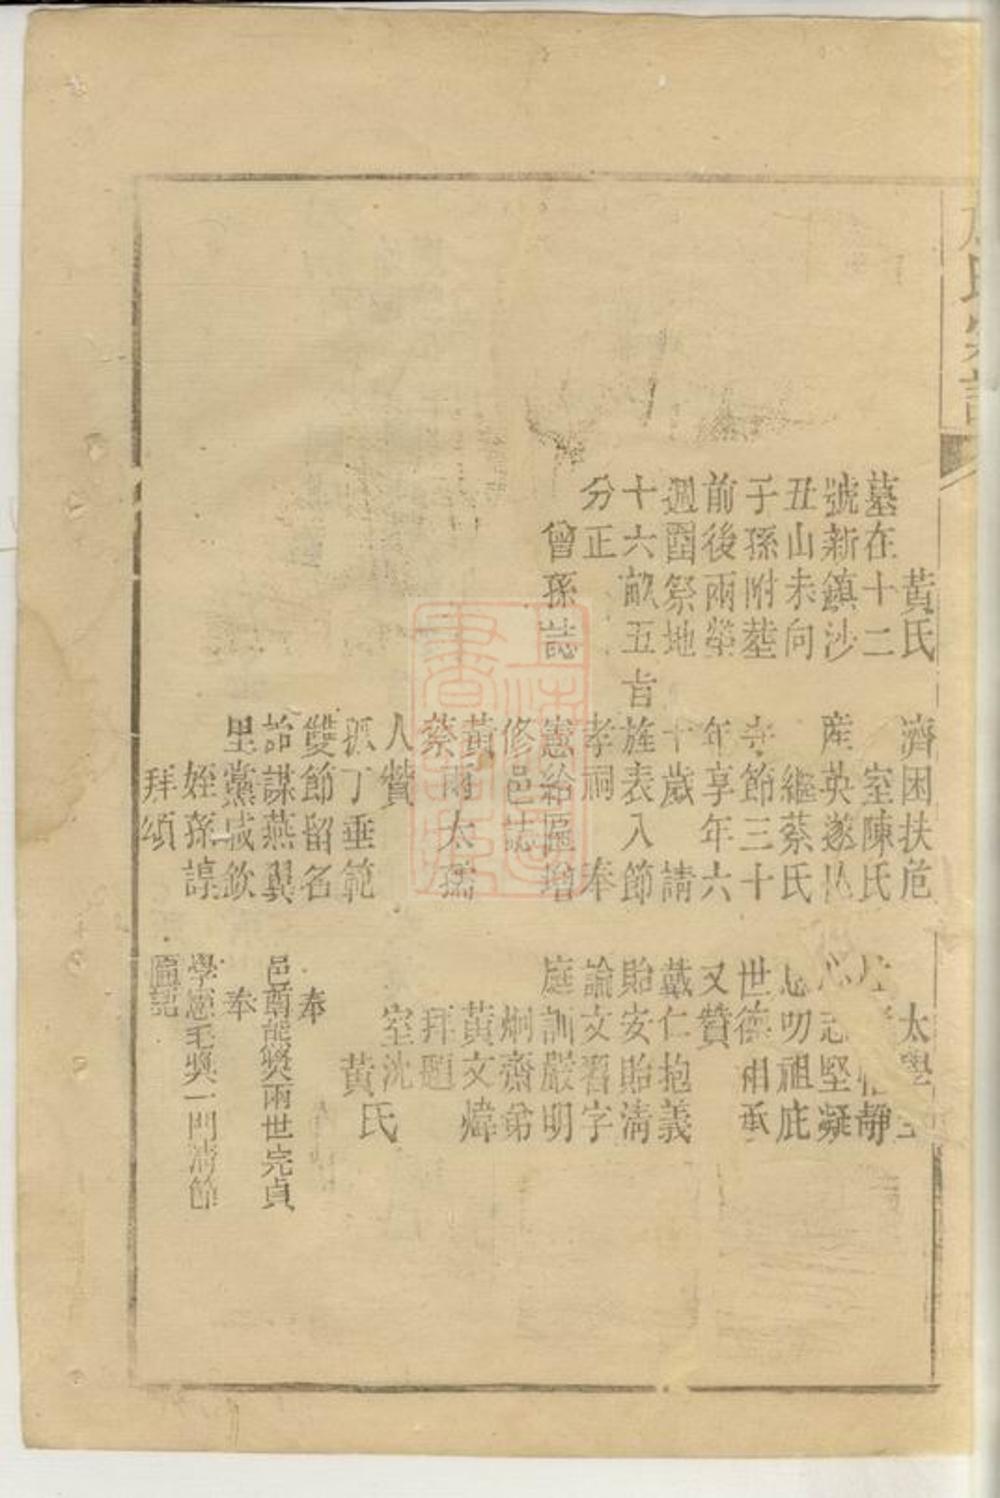 氏宗譜
黃氏
墓在十二
號新鎮沙
丑山未向
子孫附塟
前後兩塋
週圍祭地
十六畝五
分正
曾孫誌
濟困扶危
室陳氏
產英遂
繼蔡氏
守節三十
年享年六
十歲 請
旨旌表入節
孝祠 奉
憲給匾增
修邑誌
黃蔡兩太孺
人贊
孤丁垂範
雙節留名
詒謀燕翼
里黨咸欽
姪孫諄
拜頌
太學
靜
志堅凝
忍叨祖庇
世德相承
又贊
戴仁抱義
貽安貽清
論文習字
庭訓嚴明
炯齋弟
黃文煒
拜題
室沈
黃氏
奉
邑尊熊奬兩世完貞
奉
學憲毛奬一門清節
匾記